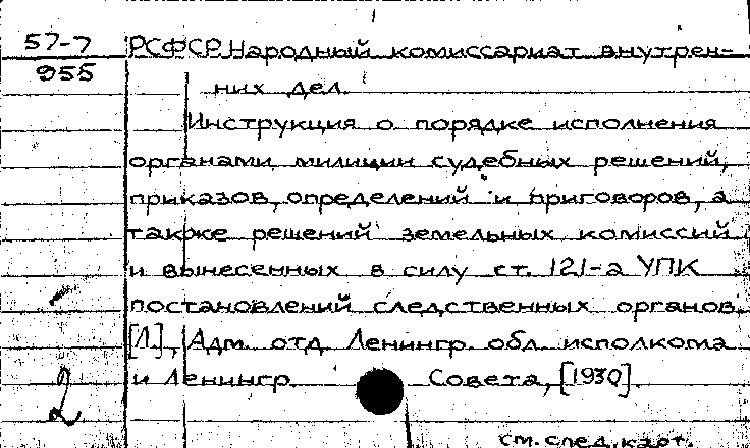 57-7
955
РСФСР. Народный комиссариат внутрен-
них дел.
Инструкция о порядке исполнения
органами милиции судебных решений,
приказов, определений и приговоров, а
также решений земельных комиссий
и вынесенных в силу ст. 121-а УПК
постановлений следственных органов.
[Л.], Адм. отд. Ленингр. обл. исполкома
и Ленингр. Совета, [1930].
2
см. след. карт.